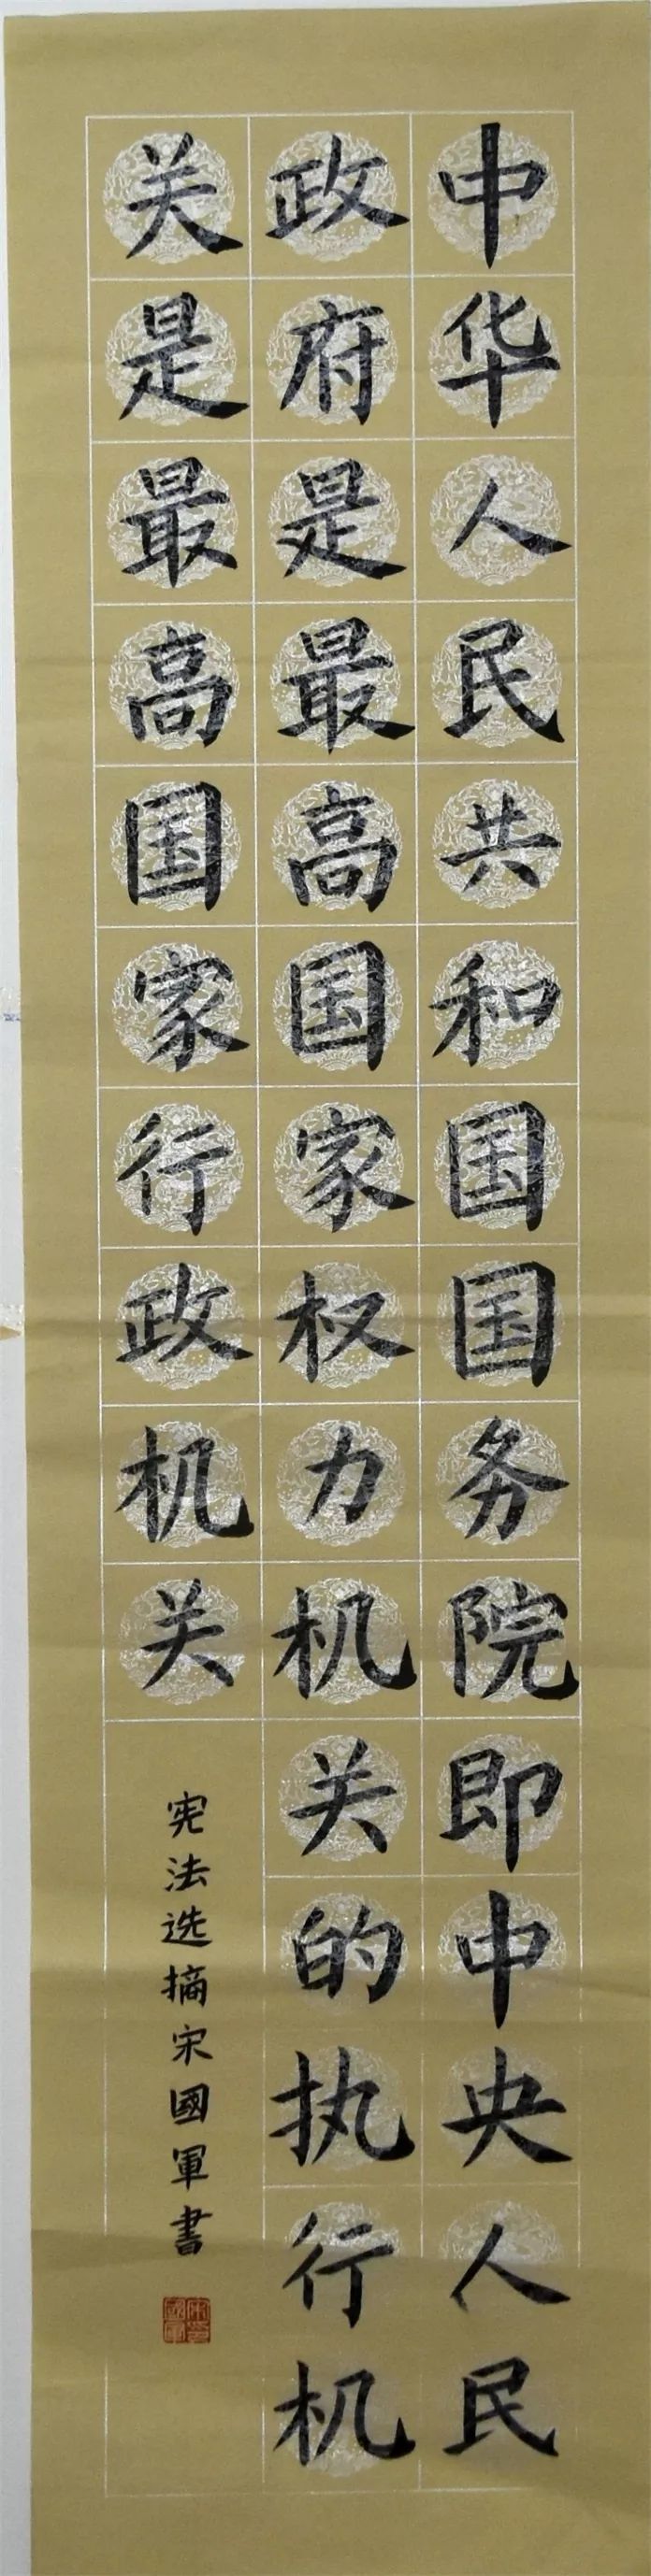 中华人民共和国国务院即中央人民
政府是最高国家权力机关的执行机
关是最高国家行政机关
宪法选摘宋國軍書